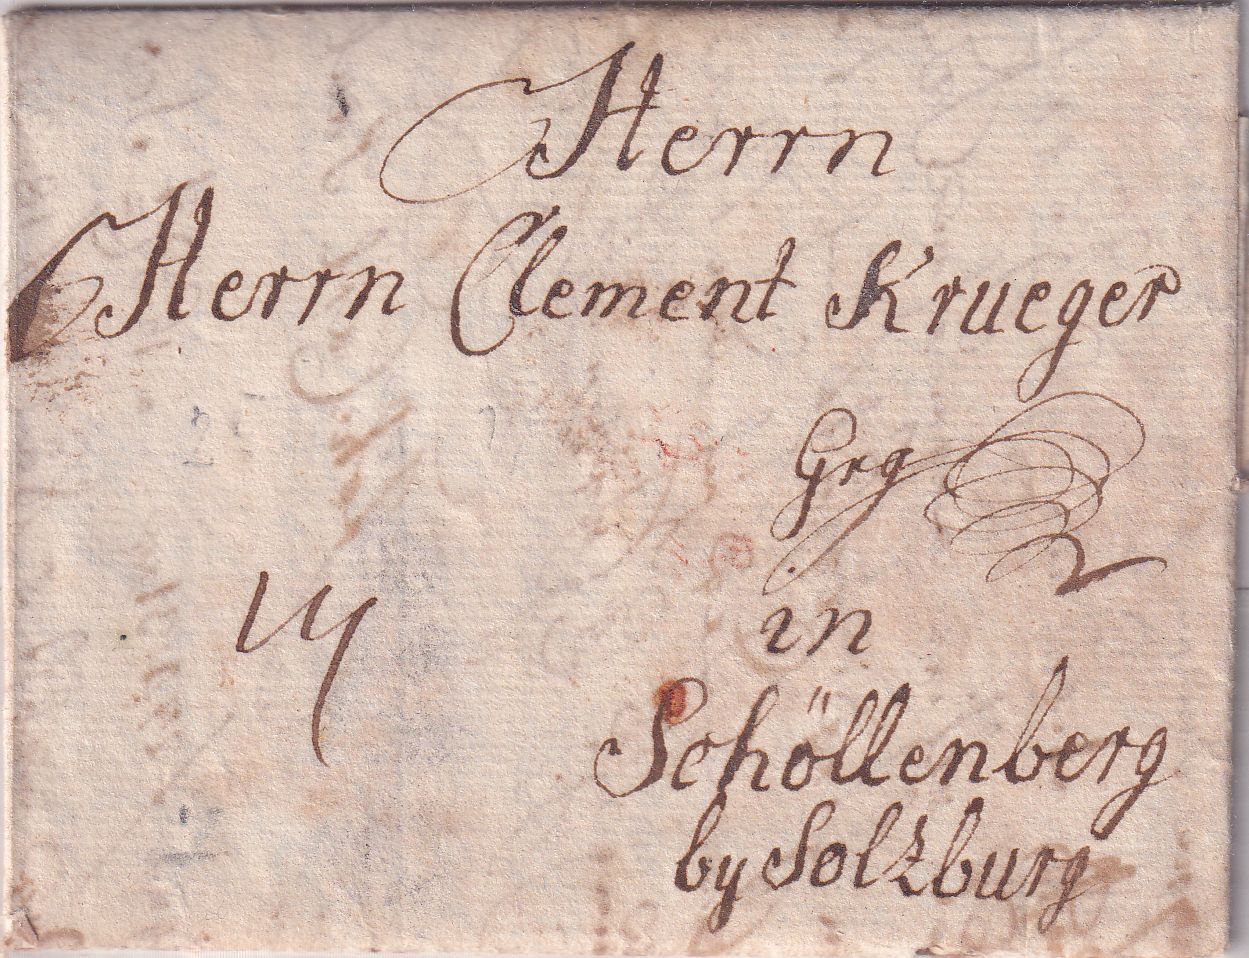 Herrn
Herrn Clement Krueger
in
Schöllenberg
by Solzburg